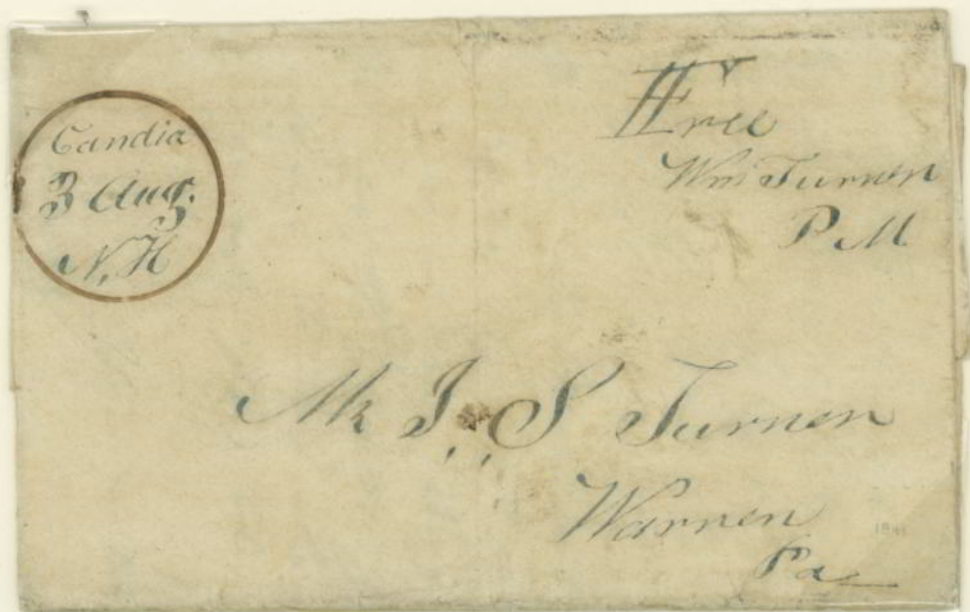 Candia
3 Aug.
N. H
Free
Wm Turner
P. M
Mr J. S Turner
Warren
Pa